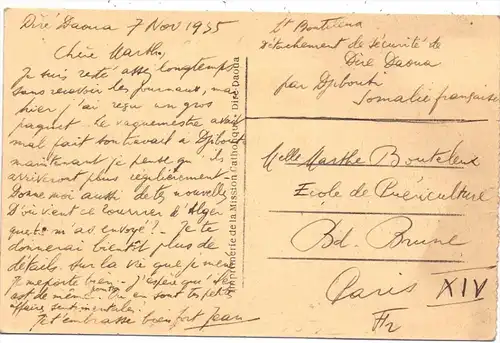 Diré Daoua 7 Nov 1935
Chère Marthe,
Je suis resté assez longtemps
sans recevoir les journaux, mais
hier j'ai reçu un gros
paquet. Le vaguemestre avait
mal fait son travail à Djibouti
maintenant je pense qu'ils
arriveront plus régulièrement
Donne moi aussi de tes nouvelles
D'où vient ce courrier d'Alger
que tu m'as envoyé. Je te
donnerai bientôt plus de
détails sur la vie que je mène
Je me porte bien. J'espère que il
est de même pour toi. Où en sont tes petites
affaires sentimentales.
Je t'embrasse bien fort Jean
Imprimerie de la Mission Catholique, Diré-Daoua
Lt Bouteleux
Détachement de Sécurité de
Diré Daoua
par Djibouti
Somalie française
Melle Marthe Bouteleux
Ecole de Puériculture
Bd. Brune
Paris XIV
Fr